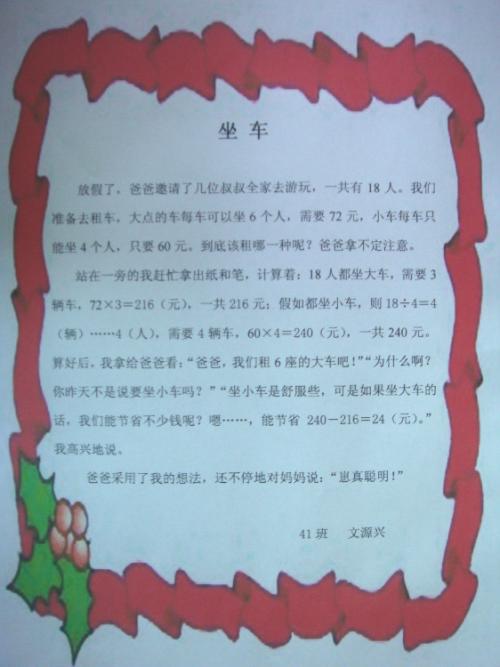 坐 车
放假了，爸爸邀请了几位叔叔全家去游玩，一共有 18 人。我们
准备去租车，大点的车每车可以坐 6 个人，需要 72 元，小车每车只
能坐 4 个人，只要 60 元。到底该租哪一种呢？爸爸拿不定注意。
站在一旁的我赶忙拿出纸和笔，计算着：18 人都坐大车，需要 3
辆车，72×3＝216（元），一共 216 元；假如都坐小车，则 18÷4＝4
（辆）……4（人），需要 4 辆车，60×4＝240（元），一共 240 元。
算好后，我拿给爸爸看：“爸爸，我们租 6 座的大车吧！”“为什么啊？
你昨天不是说要坐小车吗？”“坐小车是舒服些，可是如果坐大车的
话，我们能节省不少钱呢？嗯……，能节省 240－216＝24（元）。”
我高兴地说。
爸爸采用了我的想法，还不停地对妈妈说：“崽真聪明！”
41 班 文源兴